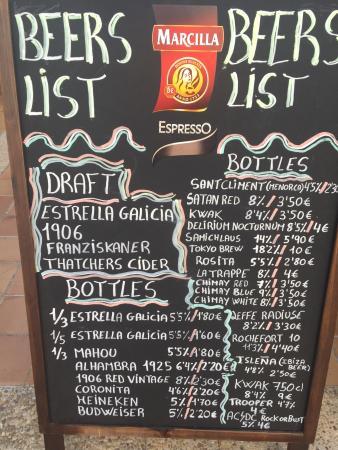 BEERS
LIST
MARCILLA
ESPRESSO
BEERS
LIST
DRAFT
ESTRELLA GALICIA
1906
FRANZISKANER
THATCHERS CIDER
BOTTLES
1/3 ESTRELLA GALICIA 5'5%/1'80€
1/5 ESTRELLA GALICIA 5'5%/1'60€
1/3 MAHOU 5'5%/1'80€
ALHAMBRA 1925 6'4%/2'20€
1906 RED VINTAGE 8%/2'30€
CORONITA 4'6%/2'20€
HEINEKEN 5%/2'20€
BUDWEISER 5%/2'20€
BOTTLES
SANTCLIMENT (MENORCA) 4'5%
SATAN RED 8%/3'50€
KWAK 8'4%/3'50€
DELIRIUM NOCTURNUM 8'5%/4€
SAMICHLAUS 14%/5'90€
TOKYO BREW 18'2%/10€
ROSITA 5'5%/2'80€
LA TRAPPE 8%/4€
CHIMAY RED 7%/3'50€
CHIMAY BLUE 9%/3'50€
CHIMAY WHITE 8%/3'50€
JEFFE RADIUSE
8'2%/3'30€
ROCHEFORT 10
11'3%/4'40€
ISLEÑA (IBIZA
BEER)
4'8% 2'50€
KWAK 750cl
8'4% 9€
TROOPER 4'7%
4€
AC/DC ROCK OR BUST
5% 4€